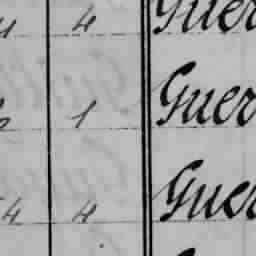 4 Guer
1 Guer
4 4 Guer